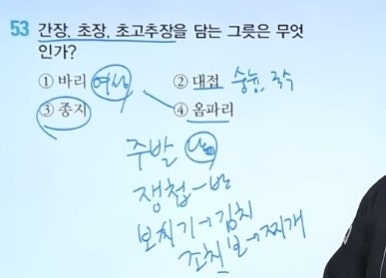 53 간장, 초장, 초고추장을 담는 그릇은 무엇
인가?
① 바리 여성 ② 대접 숭늉, 국수
③ 종지 ④ 옴파리
주발 남
쟁첩-반
보시기→김치
조치보→찌개